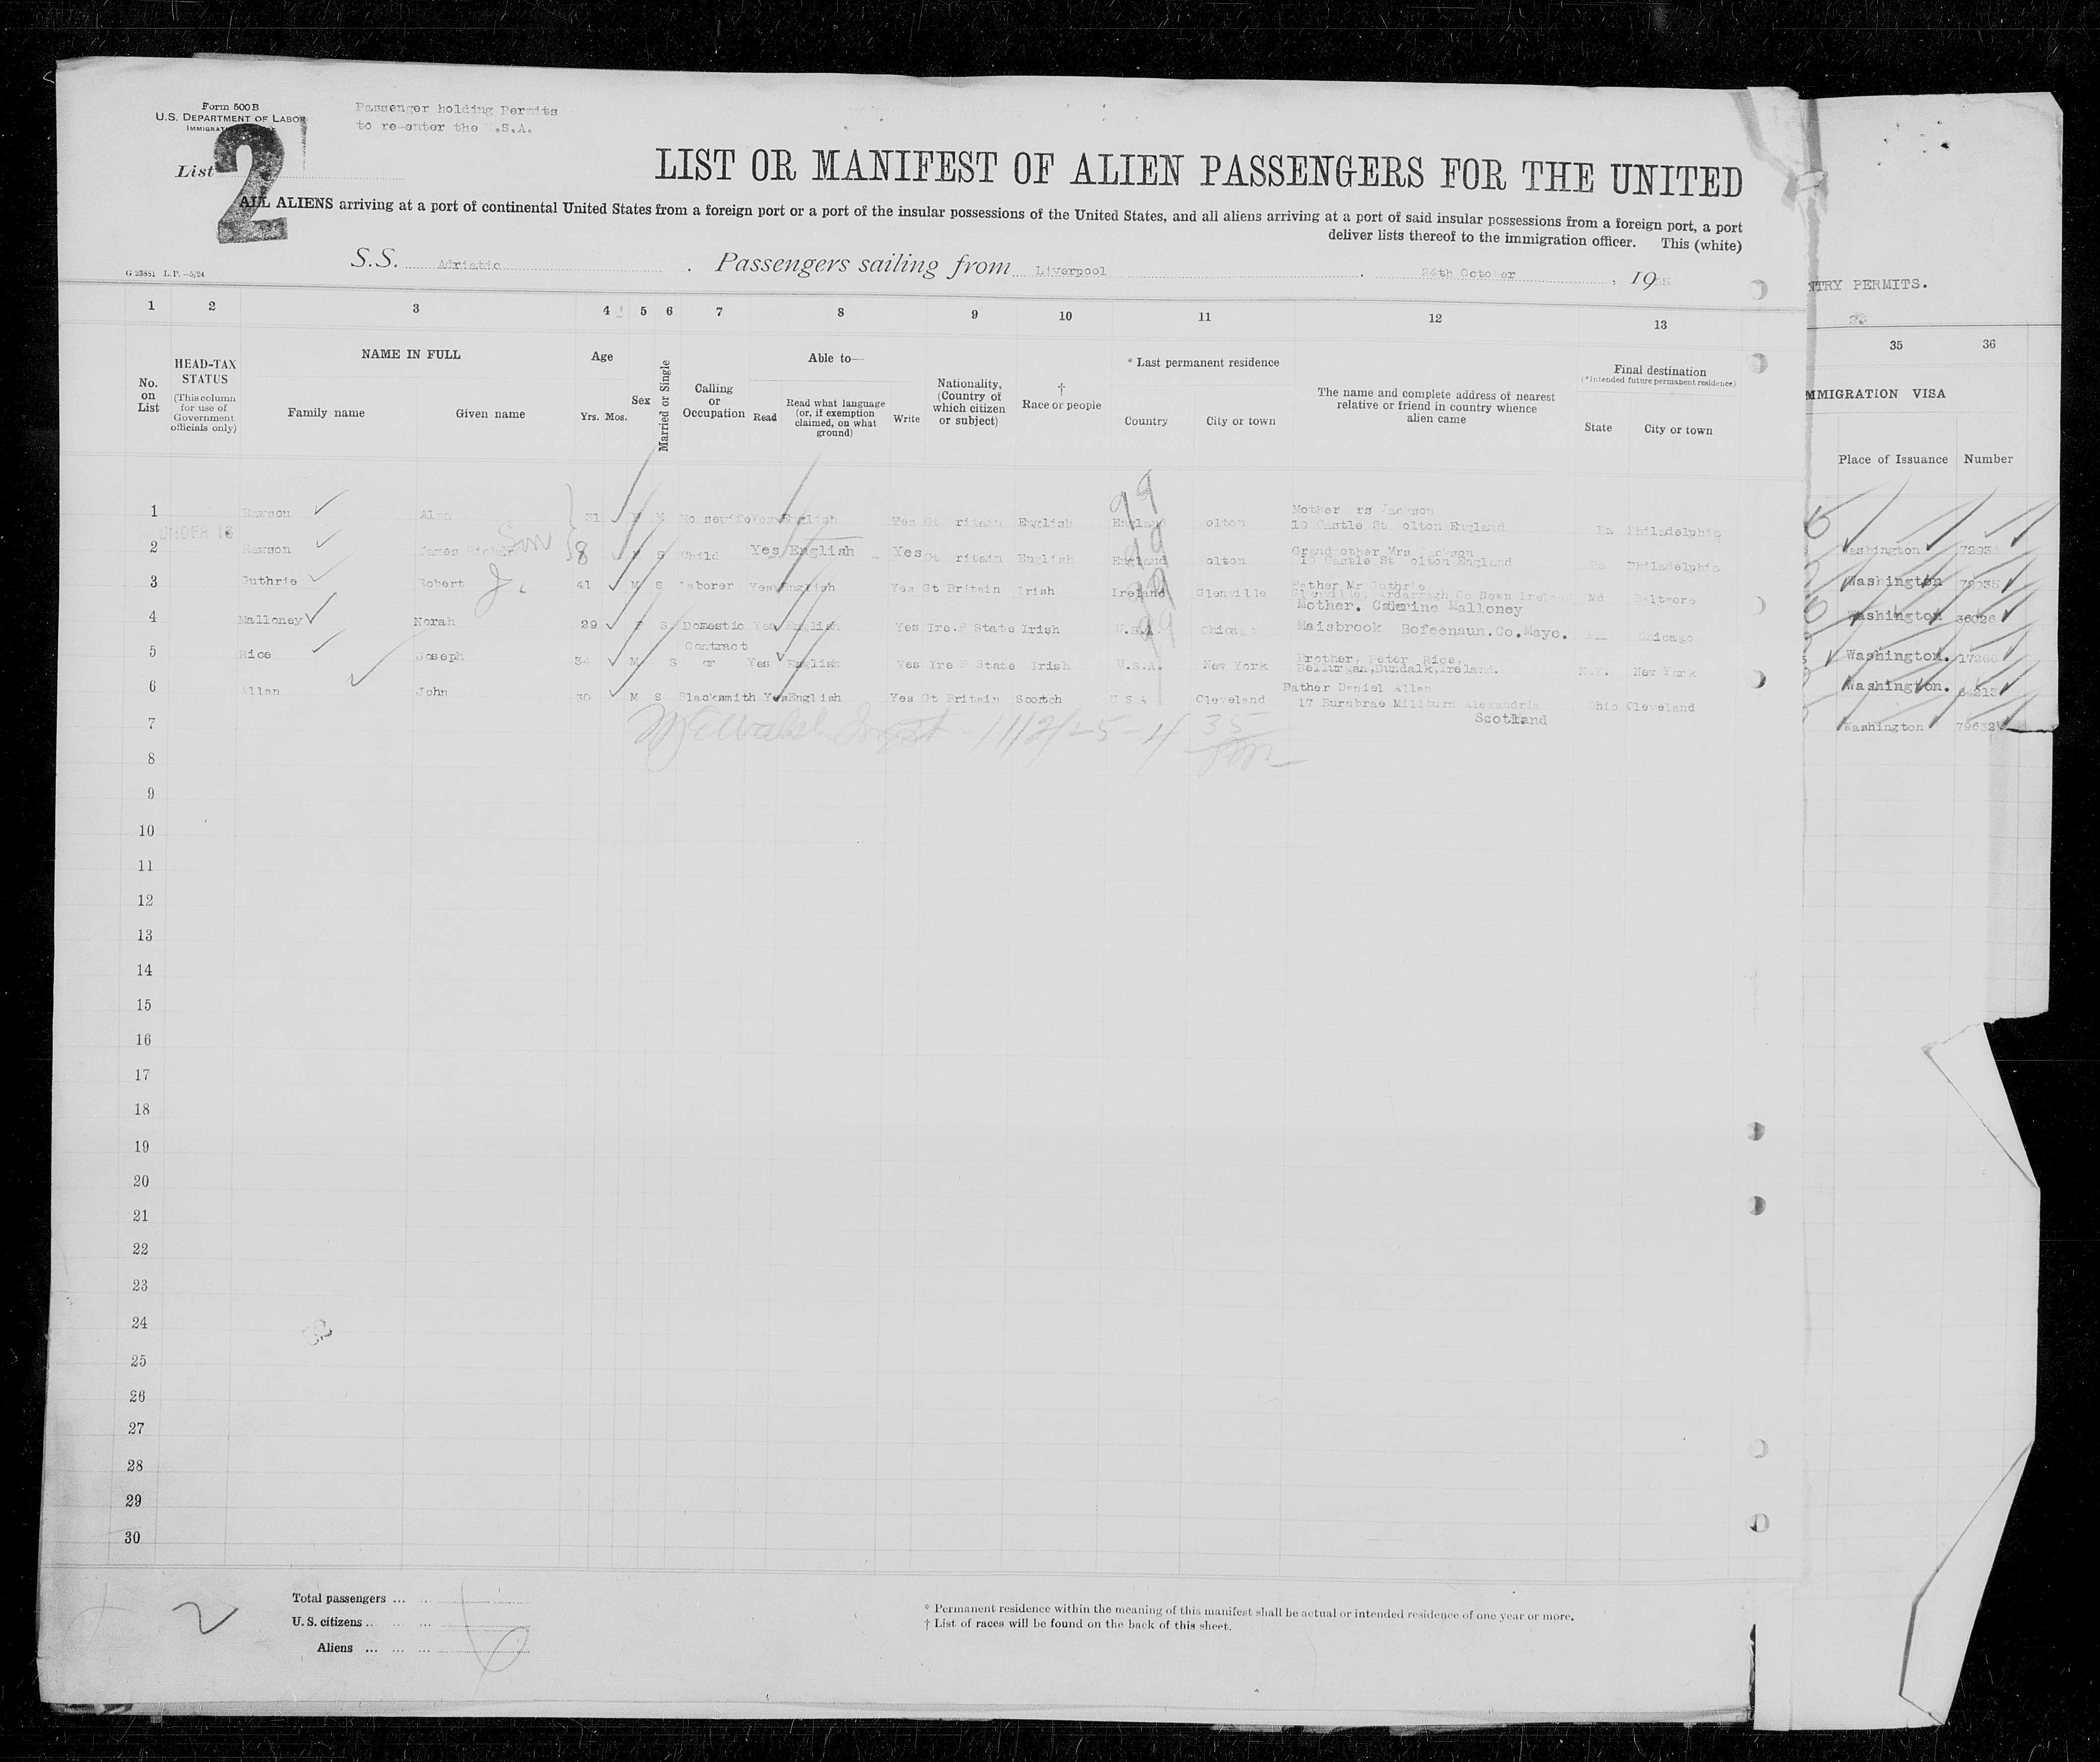 Form 500 B
U.S. DEPARTMENT OF LABOR
Passenger holding Permits
to re-enter the U.S.A.
List 2
LIST OR MANIFEST OF ALIEN PASSENGERS FOR THE UNITED
ALL ALIENS arriving at a port of continental United States from a foreign port or a port of the insular possessions of the United States, and all aliens arriving at a port of said insular possessions from a foreign port, a port
deliver lists thereof to the immigration officer. This (white)
S.S. Adriatic. Passengers sailing from Liverpool, 24th October, 19
G 23881 L.P.—5/24
NTRY PERMITS.
1 2 3 4 5 6 7 8 9 10 11 12 13 35 36
HEAD-TAX STATUS
(This column for use of Government officials only)
No. on List
NAME IN FULL
Family name Given name
Age
Yrs. Mos.
Sex
Married or Single
Calling or Occupation
Able to—
Read
Read what language (or, if exemption claimed, on what ground)
Write
Nationality, (Country of which citizen or subject)
†
Race or people
* Last permanent residence
Country City or town
The name and complete address of nearest relative or friend in country whence alien came
Final destination
(*Intended future permanent residence)
State City or town
MMIGRATION VISA
Place of Issuance Number
1 Rawson 31 F M Housewife Yes English Yes Gt ritain English England olton Mother rs Jackson
19 Castle St olton England Pa Philadelphia ashington
UNDER 16
2 Rawson James Son 8 M S Child Yes English Yes Gt ritain English England olton Grandmother Mrs Jackson
19 Castle St olton England Pa Philadelphia Washington
3 Guthrie Robert 41 M S Laborer Yes English Yes Gt Britain Irish Ireland Glenville Father Mr Guthrie
Md Baltmore Washington 36026
4 Malloney Norah 29 F S Domestic Yes English Yes Ire.F State Irish U.S.A. Chicago Mother. Catherine Malloney
Maisbrook Bofeenaun.Co.Mayo. Chicago Washington.
5 Rice Joseph 34 M S Contract or Yes English Yes Ire F State Irish U.S.A. New York Brother, Peter Rice,
Bellurgan,Dundalk,Ireland. N.Y. New York Washington. 64213
6 Allan John 30 M S Blacksmith Yes English Yes Gt Britain Scotch U S A Cleveland Father Daniel Allan
17 Burnbrae Milburn Alexandria
Scotland Ohio Cleveland Washington 79632
99
99
99
99
7
8
9
10
11
12
13
14
15
16
17
18
19
20
21
22
23
24
25
26
27
28
29
30
2
Total passengers ...
U. S. citizens ...
Aliens ... 6
* Permanent residence within the meaning of this manifest shall be actual or intended residence of one year or more.
† List of races will be found on the back of this sheet.